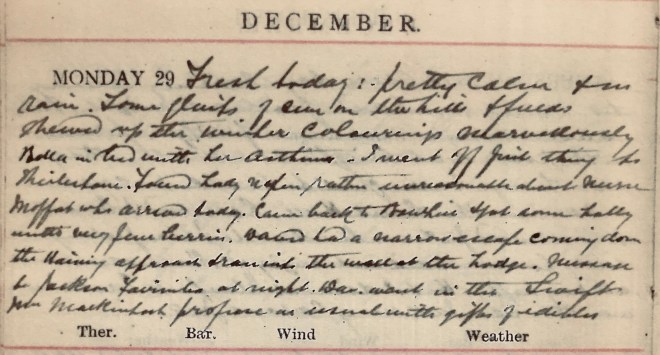 DECEMBER.
MONDAY 29 Fresh today: pretty calm & no
rain. Some glints of sun on the hills & fields
shewed up the winter colourings marvellously
Bella in bed with her asthma. I went off first thing to
Thirlestane. Found Lady rather unreasonable about Nurse
Moffat who arrived today. Came back to Bowhill & got some holly
with very few berries. David had a narrow escape coming down
the approach & ran into the wall at the Lodge. Message
to Jackson at night. Dav. went in the Swift
Mrs Mackintosh profuse as usual with gifts of edibles
Ther. Bar. Wind Weather